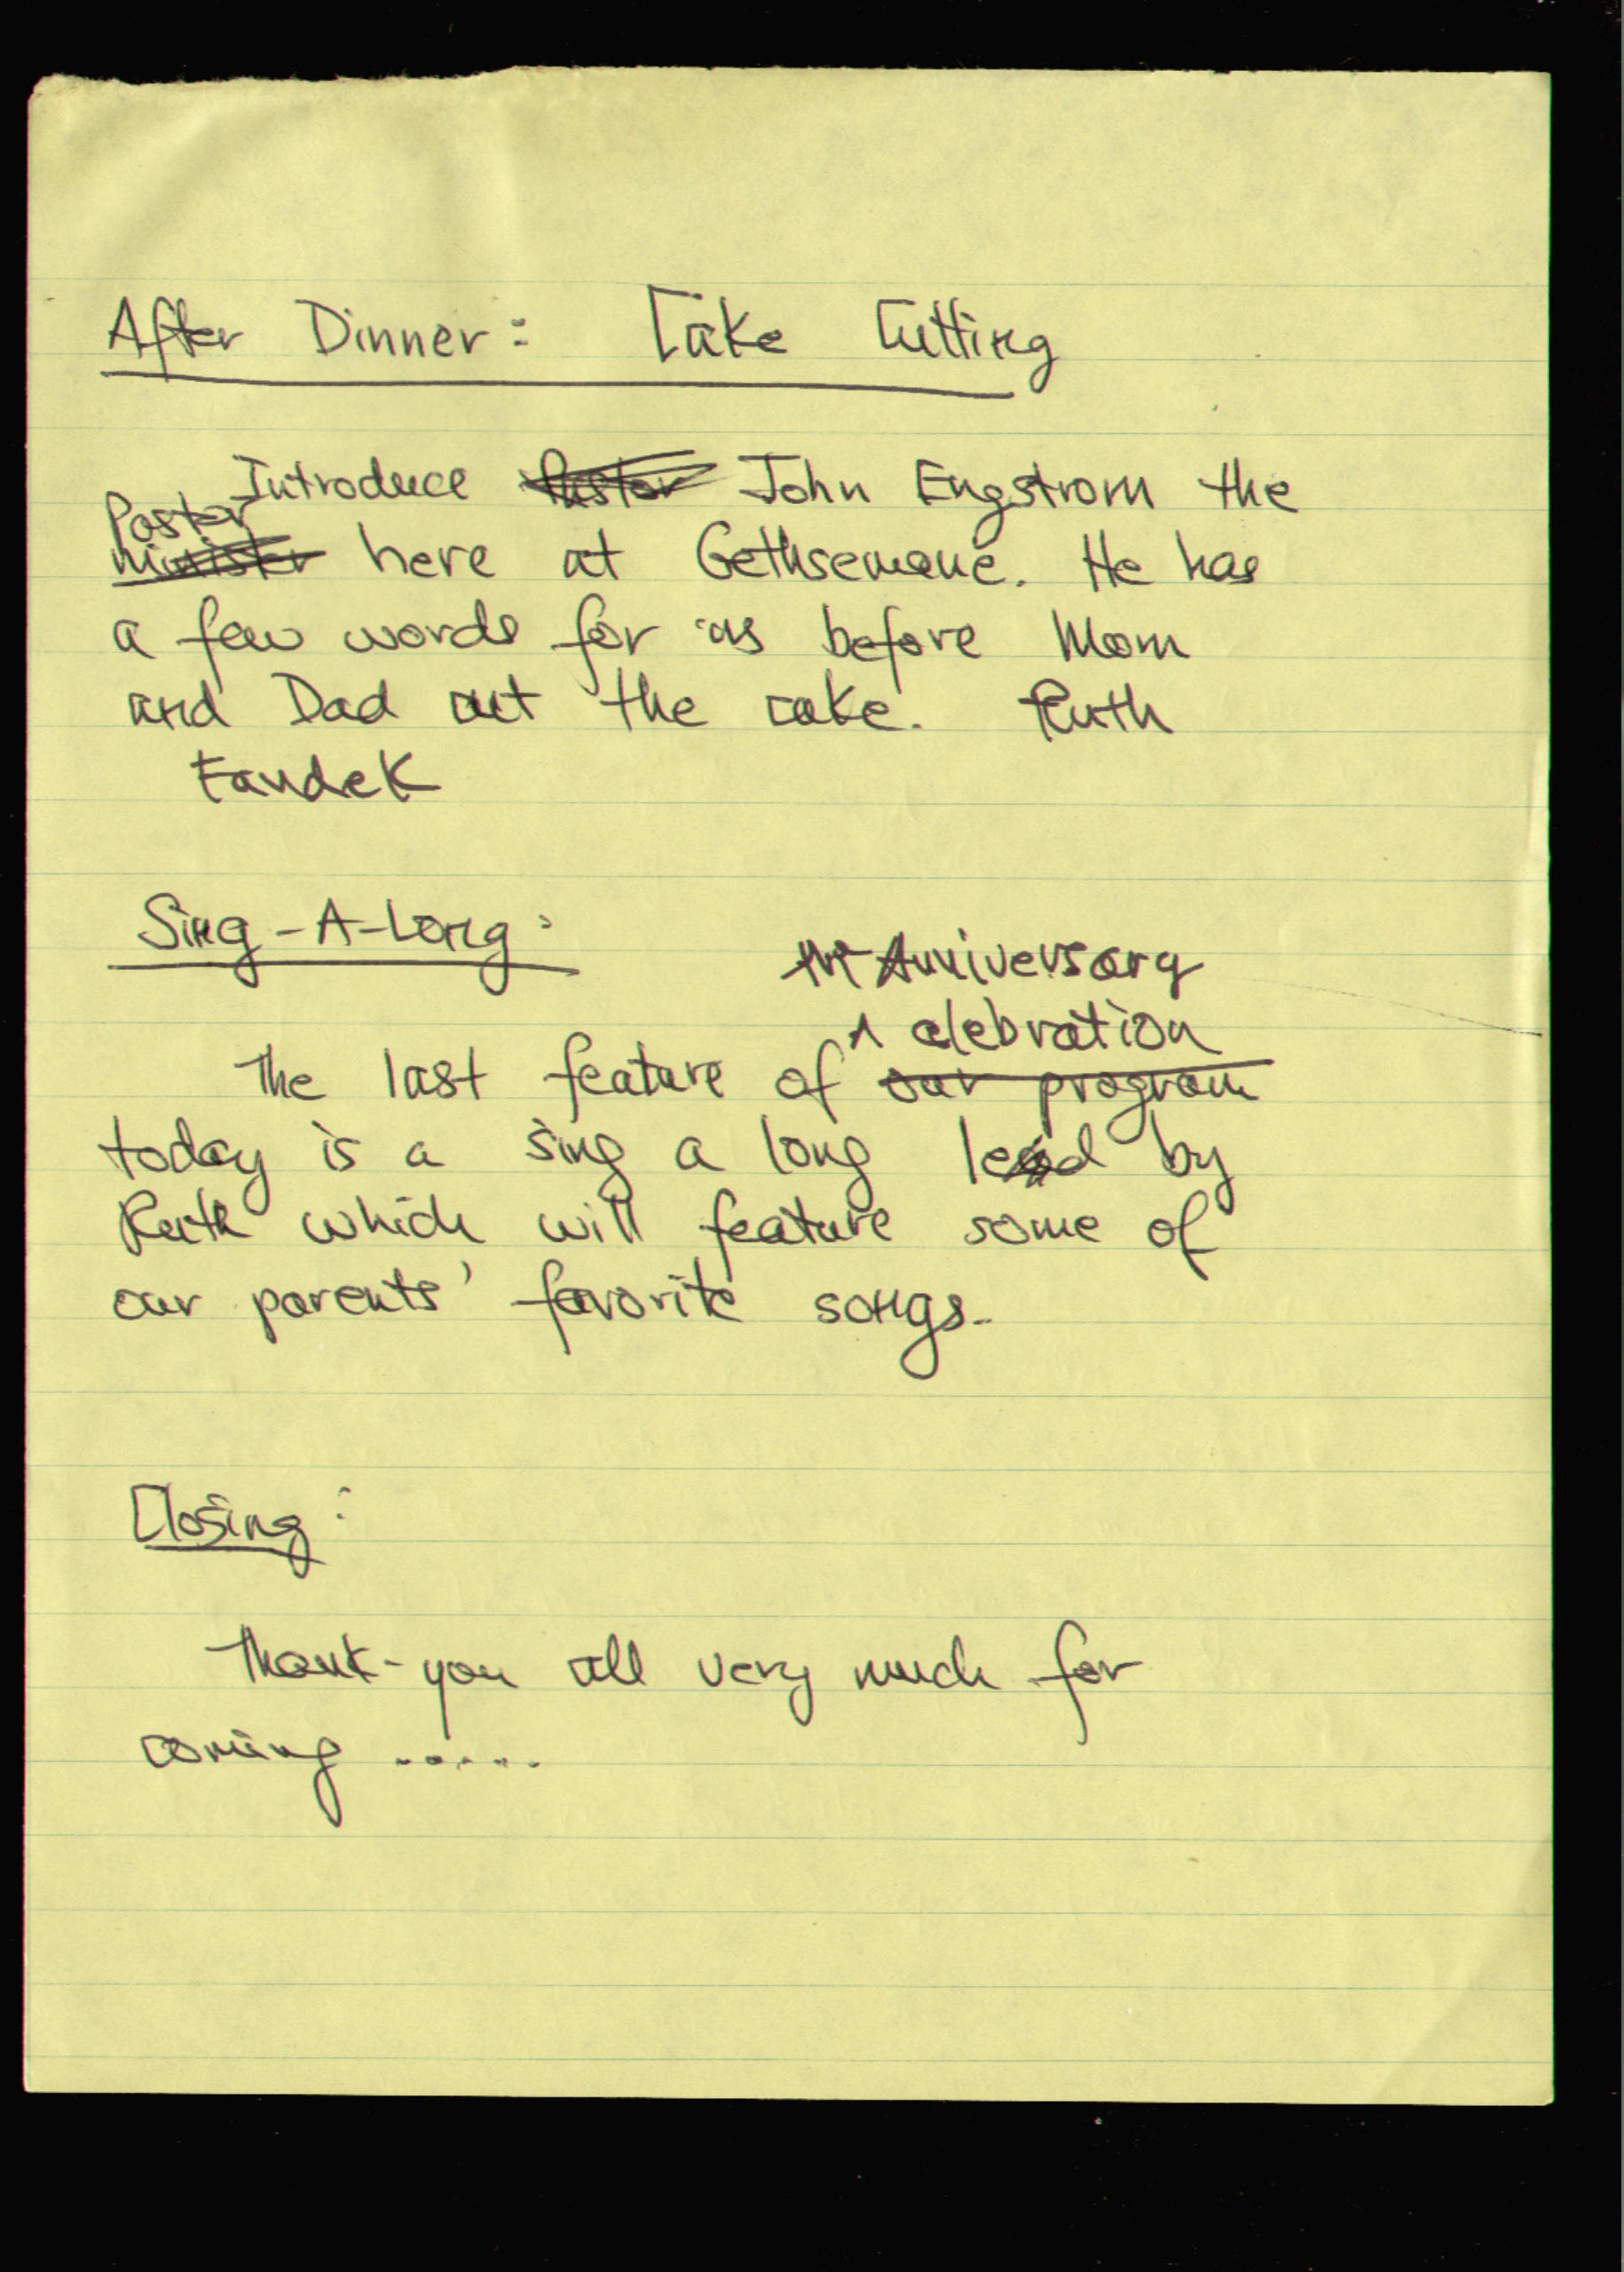 After Dinner: Cake Cutting
Introduce Pastor John Engstrom the
Pastor
minister here at Gethsemane. He has
a few words for us before Mom
and Dad cut the cake. Ruth
Fandek
Sing-A-Long:
Anniversary
^ celebration
The last feature of our program
today is a sing a long led by
Ruth which will feature some of
our parents' favorite songs.
Closing:
Thank-you all very much for
coming .....